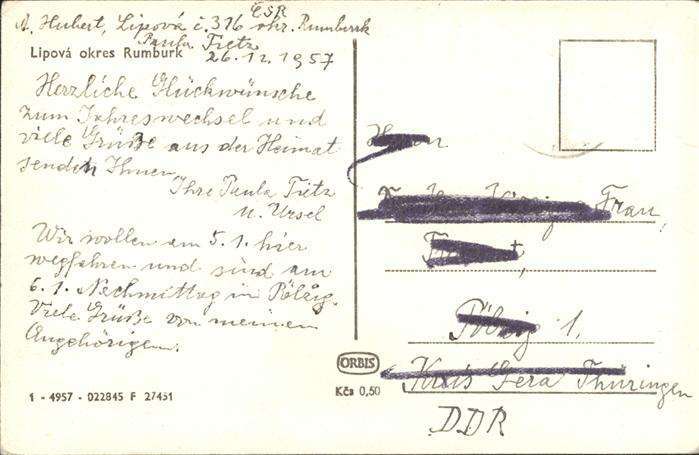 ČSR
A. Hubert, Lipová č. 316 okr. Rumburk
Paula Tietz
Lipová okres Rumburk 26.12.1957
Herzliche Glückwünsche
zum Jahreswechsel und
viele Grüße aus der Heimat
senden Ihnen
Ihre Paula Tietz
u. Ursel
Wir wollen am 5.1. hier
wegfahren und sind am
6.1. Nachmittag in Pölzig.
Viele Grüße von meinen
Angehörigen.
1 - 4957 - 022845 F 27451
ORBIS
Kčs 0,50
Frau,
Pölzig 1,
Kreis Gera Thüringen
DDR